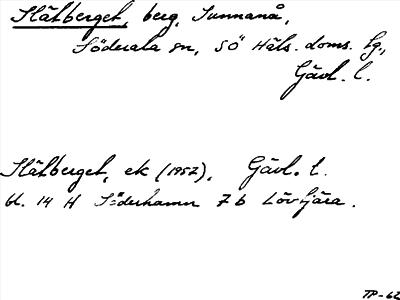 Slätberget, berg, Sunnanå,
Söderala sn, SÖ Häls. doms. tg.,
Gävl. l.
Slätberget, ek (1957), Gävl. l.
bl. 14 H Söderhamn 7 b Lövtjära.
TP-62